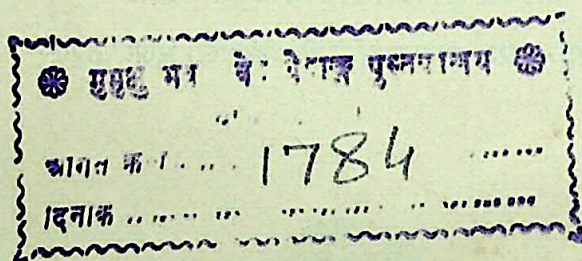 मुमुक्षु भव वेद वेदाङ्ग पुस्तकालय
आगत क्र..... 1784 ......
दिनांक ........................